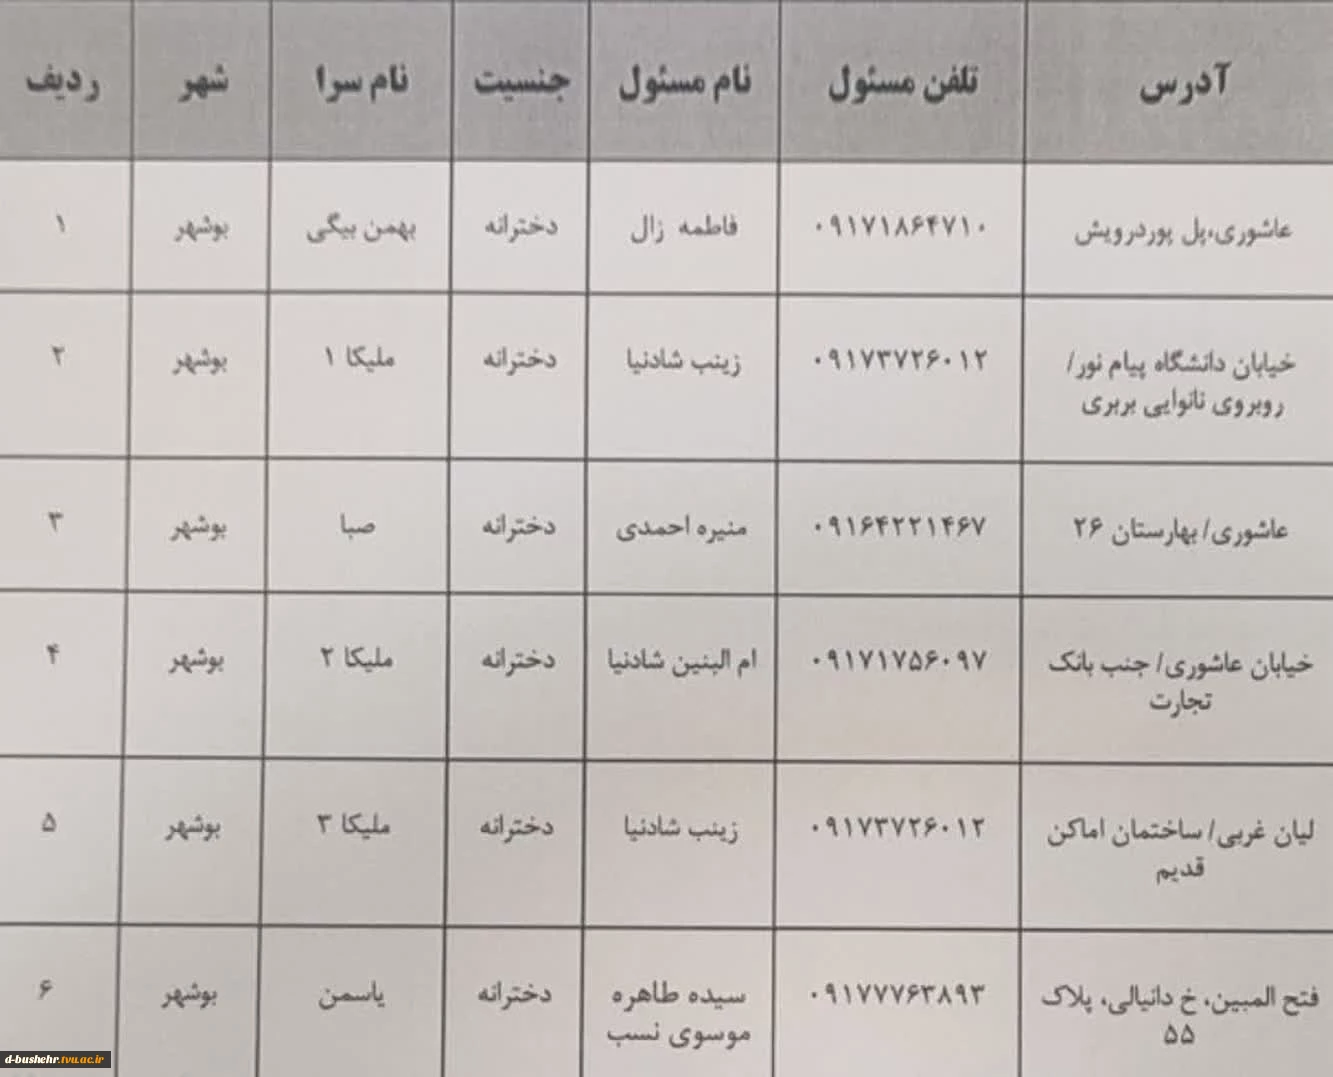 ردیف شهر نام سرا جنسیت نام مسئول تلفن مسئول آدرس
۱ بوشهر بهمن بیگی دخترانه فاطمه زال ۰۹۱۷۱۸۶۴۷۱۰ عاشوری،پل پوردرویش
۲ بوشهر ملیکا ۱ دخترانه زینب شادنیا ۰۹۱۷۳۷۲۶۰۱۲ خیابان دانشگاه پیام نور/
روبروی نانوایی بربری
۳ بوشهر صبا دخترانه منیره احمدی ۰۹۱۶۴۲۲۱۴۶۷ عاشوری/ بهارستان ۲۶
۴ بوشهر ملیکا ۲ دخترانه ام البنین شادنیا ۰۹۱۷۱۷۵۶۰۹۷ خیابان عاشوری/ جنب بانک
تجارت
۵ بوشهر ملیکا ۳ دخترانه زینب شادنیا ۰۹۱۷۳۷۲۶۰۱۲ لیان غربی/ ساختمان اماکن
قدیم
۶ بوشهر یاسمن دخترانه سیده طاهره ۰۹۱۷۷۷۶۳۸۹۳ فتح المبین، خ دانیالی، پلاک
موسوی نسب ۵۵
d-bushehr.tvu.ac.ir